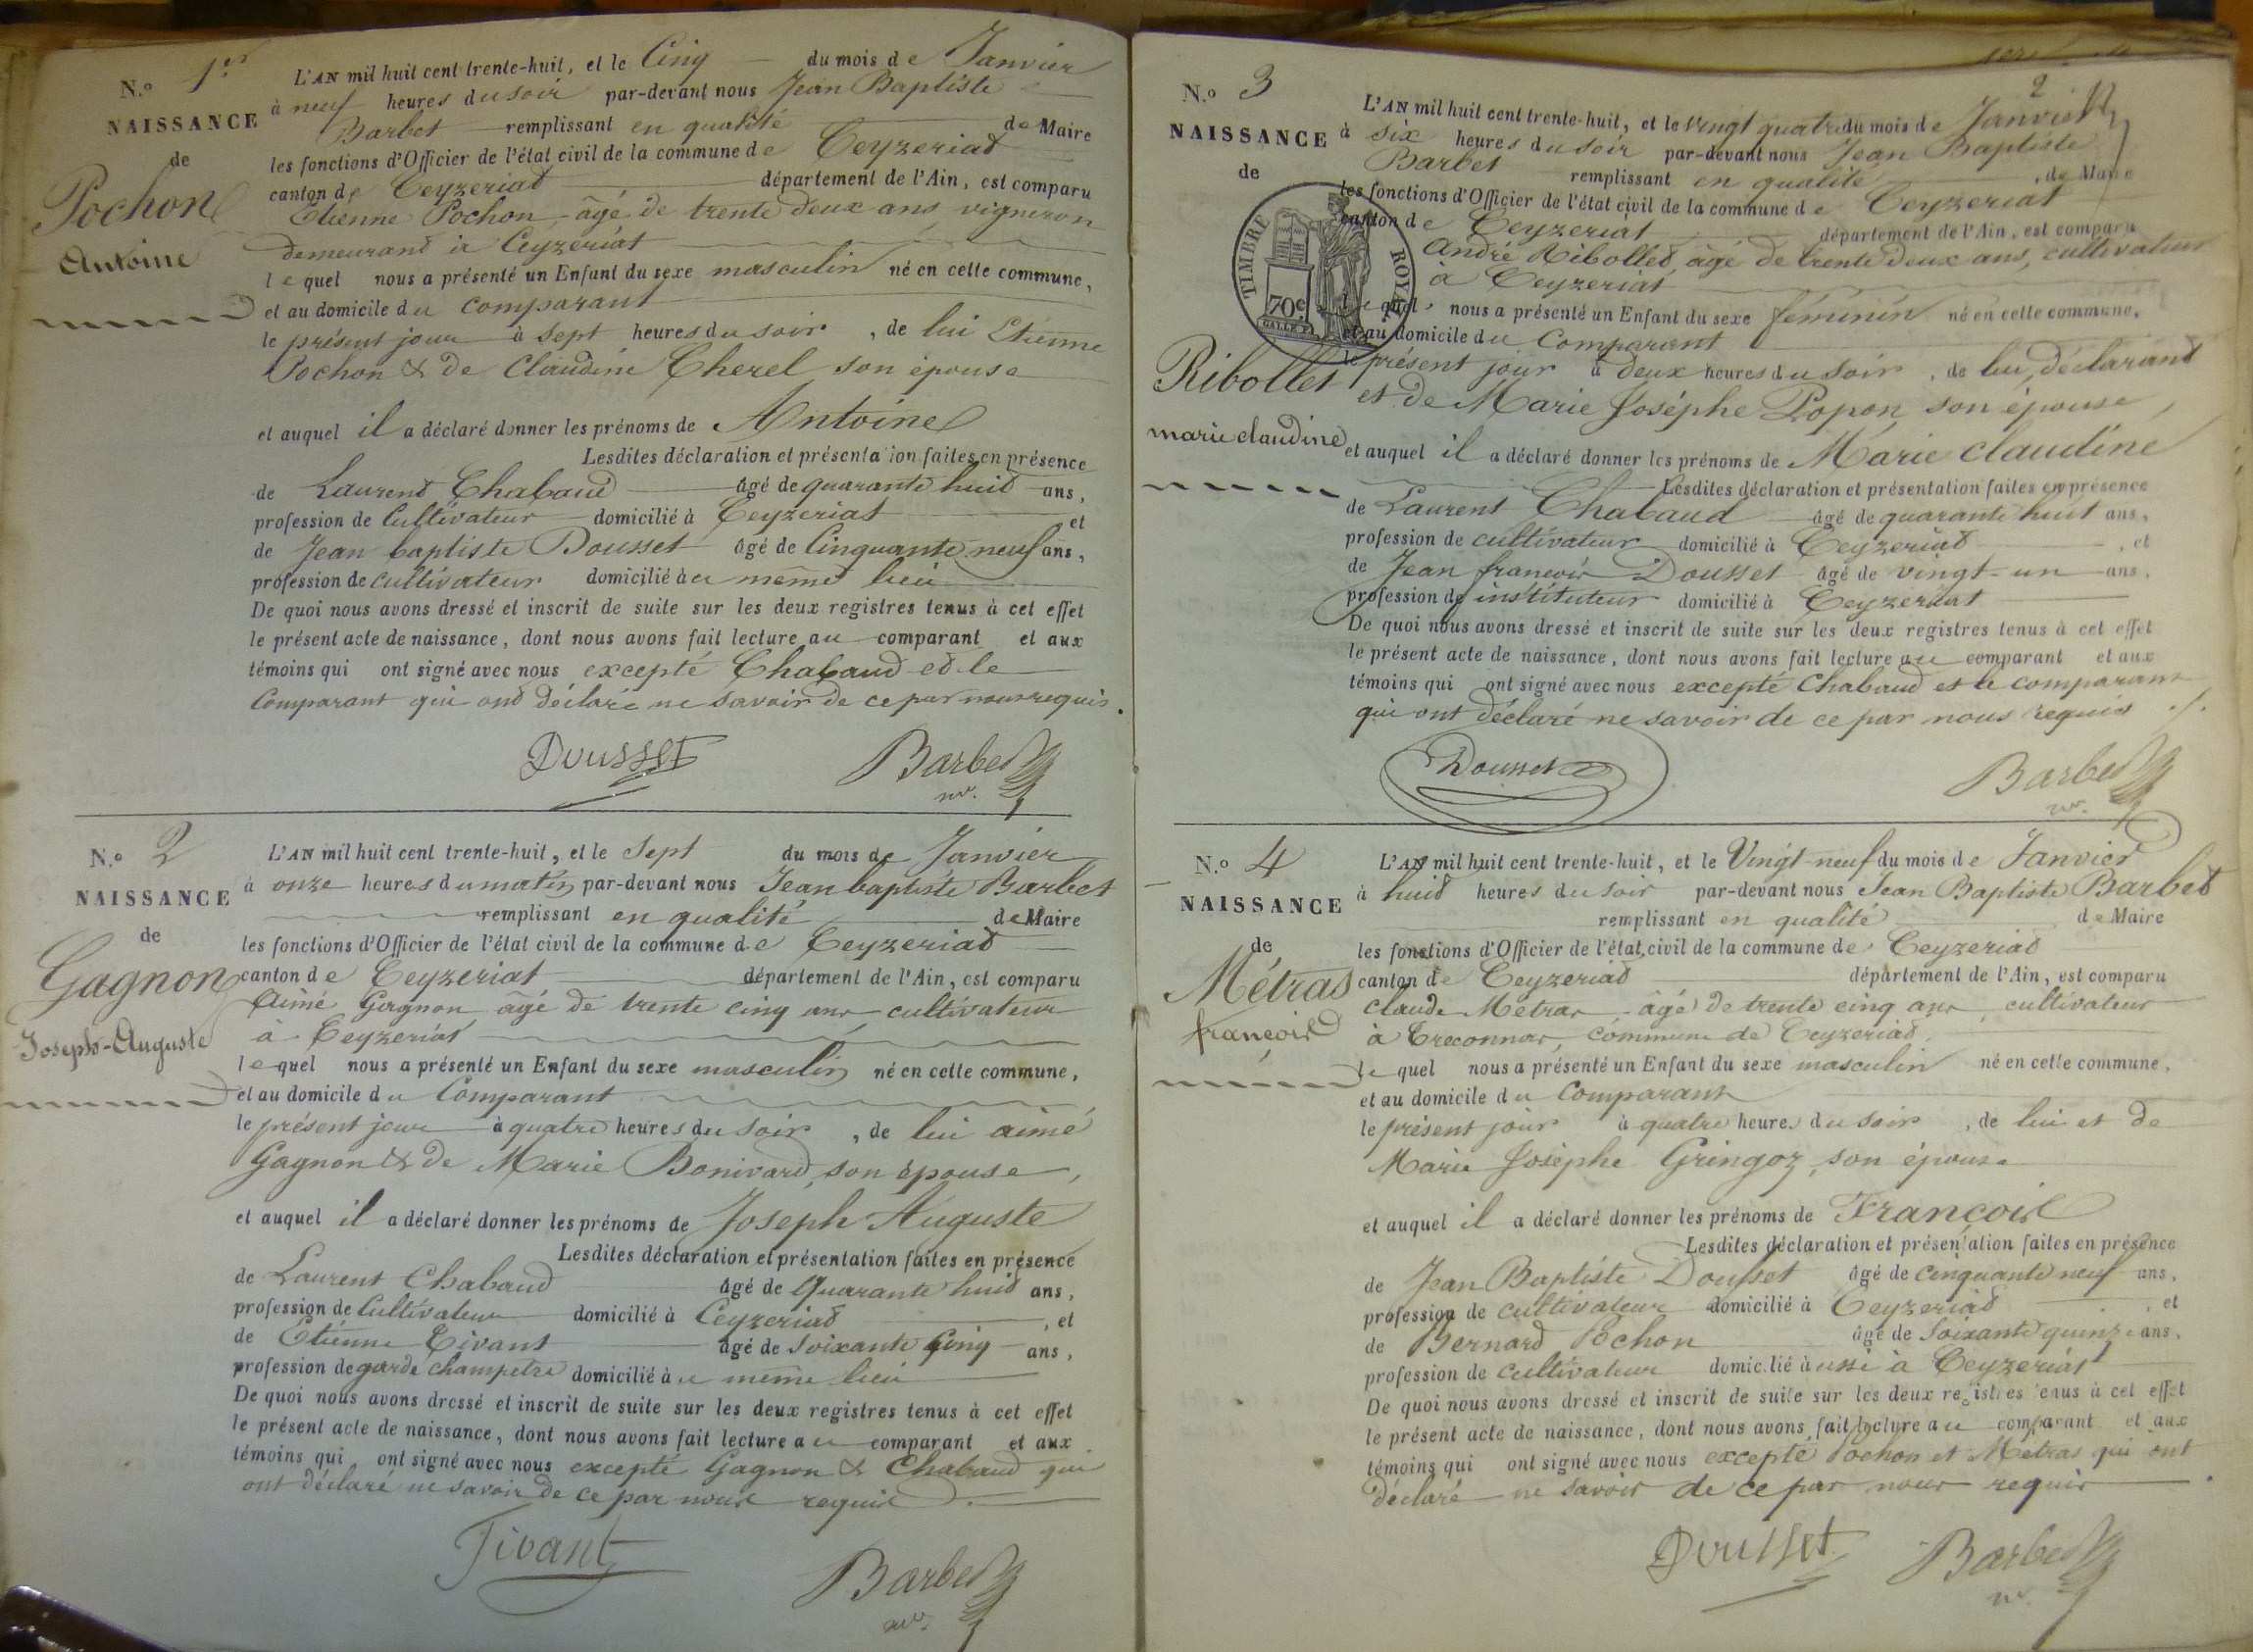 N.o 1er
NAISSANCE
de
Pochon
Antoine
L'AN mil huit cent trente-huit, et le Cinq du mois de Janvier
à neuf heures du soir par-devant nous Jean Baptiste
Barbet remplissant en qualité de Maire
les fonctions d'Officier de l'état civil de la commune de Ceyzeriat
canton de Ceyzeriat département de l'Ain, est comparu
Etienne Pochon âgé de trente deux ans vigneron
demeurant à Ceyzériat
lequel nous a présenté un Enfant du sexe masculin né en cette commune,
et au domicile du comparant
le présent jour à sept heures du soir, de lui Etienne
Pochon & de Claudine Cherel son épouse
et auquel il a déclaré donner les prénoms de Antoine
Lesdites déclaration et présentation faites en présence
de Laurent Chabaud âgé de quarante huit ans,
profession de Cultivateur domicilié à Ceyzeriat et
de Jean baptiste Dousset âgé de Cinquante neuf ans,
profession de cultivateur domicilié au même lieu
De quoi nous avons dressé et inscrit de suite sur les deux registres tenus à cet effet
le présent acte de naissance, dont nous avons fait lecture au comparant et aux
témoins qui ont signé avec nous excepté Chabaud et le
Comparant qui ont déclaré ne savoir de ce par nous requis.
Dousset Barbet
N.o 2
NAISSANCE
de
Gagnon
Joseph-Auguste
L'AN mil huit cent trente-huit, et le Sept du mois de Janvier
à onze heures du matin par-devant nous Jean baptiste Barbet
remplissant en qualité de Maire
les fonctions d'Officier de l'état civil de la commune de Ceyzeriat
canton de Ceyzeriat département de l'Ain, est comparu
Aimé Gagnon âgé de trente cinq ans cultivateur
à Ceyzeriat
lequel nous a présenté un Enfant du sexe masculin né en cette commune,
et au domicile du Comparant
le présent jour à quatre heures du soir, de lui aimé
Gagnon & de Marie Bonivard, son épouse,
et auquel il a déclaré donner les prénoms de Joseph Auguste
Lesdites déclaration et présentation faites en présence
de Laurent Chabaud âgé de Quarante huit ans,
profession de Cultivateur domicilié à Ceyzeriat, et
de Etienne Tivant âgé de Soixante Cinq ans,
profession de garde champetre domicilié au même lieu
De quoi nous avons dressé et inscrit de suite sur les deux registres tenus à cet effet
le présent acte de naissance, dont nous avons fait lecture au comparant et aux
témoins qui ont signé avec nous excepté Gagnon & Chabaud qui
ont déclaré ne savoir de ce par nous requis.
Tivant Barbet
2
N.o 3
NAISSANCE
de
TIMBRE ROYAL
70c
Ribollet
marie claudine
L'AN mil huit cent trente-huit, et le vingt quatre du mois de Janvier
à six heures du soir par-devant nous Jean Baptiste
Barbet remplissant en qualité, de Maire
les fonctions d'Officier de l'état civil de la commune de Ceyzeriat
canton de Ceyzeriat département de l'Ain, est comparu
André Ribollet âgé de trente deux ans, cultivateur
à Ceyzériat
lequel nous a présenté un Enfant du sexe féminin né en cette commune,
et au domicile du Comparant
le présent jour à deux heures du soir, de lui déclarant
et de Marie Josèphe Popon, son épouse,
et auquel il a déclaré donner les prénoms de Marie Claudine
Lesdites déclaration et présentation faites en présence
de Laurent Chabaud âgé de quarante huit ans,
profession de cultivateur domicilié à Ceyzeriat, et
de Jean francois Dousset âgé de vingt-un ans,
profession de instituteur domicilié à Ceyzeriat
De quoi nous avons dressé et inscrit de suite sur les deux registres tenus à cet effet
le présent acte de naissance, dont nous avons fait lecture au comparant et aux
témoins qui ont signé avec nous excepté Chabaud et le comparant
qui ont déclaré ne savoir de ce par nous requis ./.
Dousset Barbet
N.o 4
NAISSANCE
de
Métras
françois
L'AN mil huit cent trente-huit, et le Vingt-neuf du mois de Janvier
à huit heures du soir par-devant nous Jean Baptiste Barbet
remplissant en qualité de Maire
les fonctions d'Officier de l'état civil de la commune de Ceyzeriat
canton de Ceyzeriat département de l'Ain, est comparu
Claude Metras âgé de trente cinq ans, cultivateur
à Treconnas, commune de Ceyzeriat.
lequel nous a présenté un Enfant du sexe masculin né en cette commune,
et au domicile du Comparant
le présent jour à quatre heures du soir, de lui et de
Marie Josèphe Gringoz, son épouse
et auquel il a déclaré donner les prénoms de François
Lesdites déclaration et présentation faites en présence
de Jean Baptiste Dousset âgé de cinquante neuf ans,
profession de cultivateur domicilié à Ceyzeriat, et
de Bernard Pochon âgé de Soixante quinze ans,
profession de cultivateur domicilié aussi à Ceyzeriat
De quoi nous avons dressé et inscrit de suite sur les deux registres tenus à cet effet
le présent acte de naissance, dont nous avons fait lecture au comparant et aux
témoins qui ont signé avec nous excepté Pochon et Métras qui ont
déclaré ne savoir de ce par nous requis.
Dousset Barbet